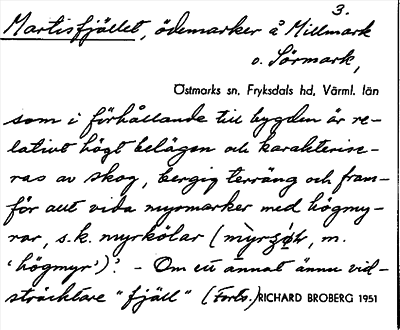 3.
Martisfjället, ödemarker å Millmark
o. Sörmark,
Östmarks sn, Fryksdals hd, Värml. län
som i förhållande till bygden är re-
lativt högt belägen och karakterise-
ras av skog, bergig terräng och fram-
för allt vida myrmarker med högmy-
rar, s.k. myrkölar (
, m.
'högmyr')? - Om ett annat ännu vid-
sträcktare "fjäll" (Forts.) RICHARD BROBERG 1951